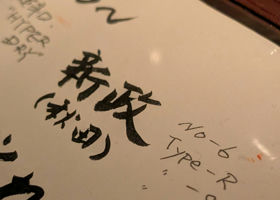 "HYPER
DRY"
新政
(秋田)
No-6
Type-R